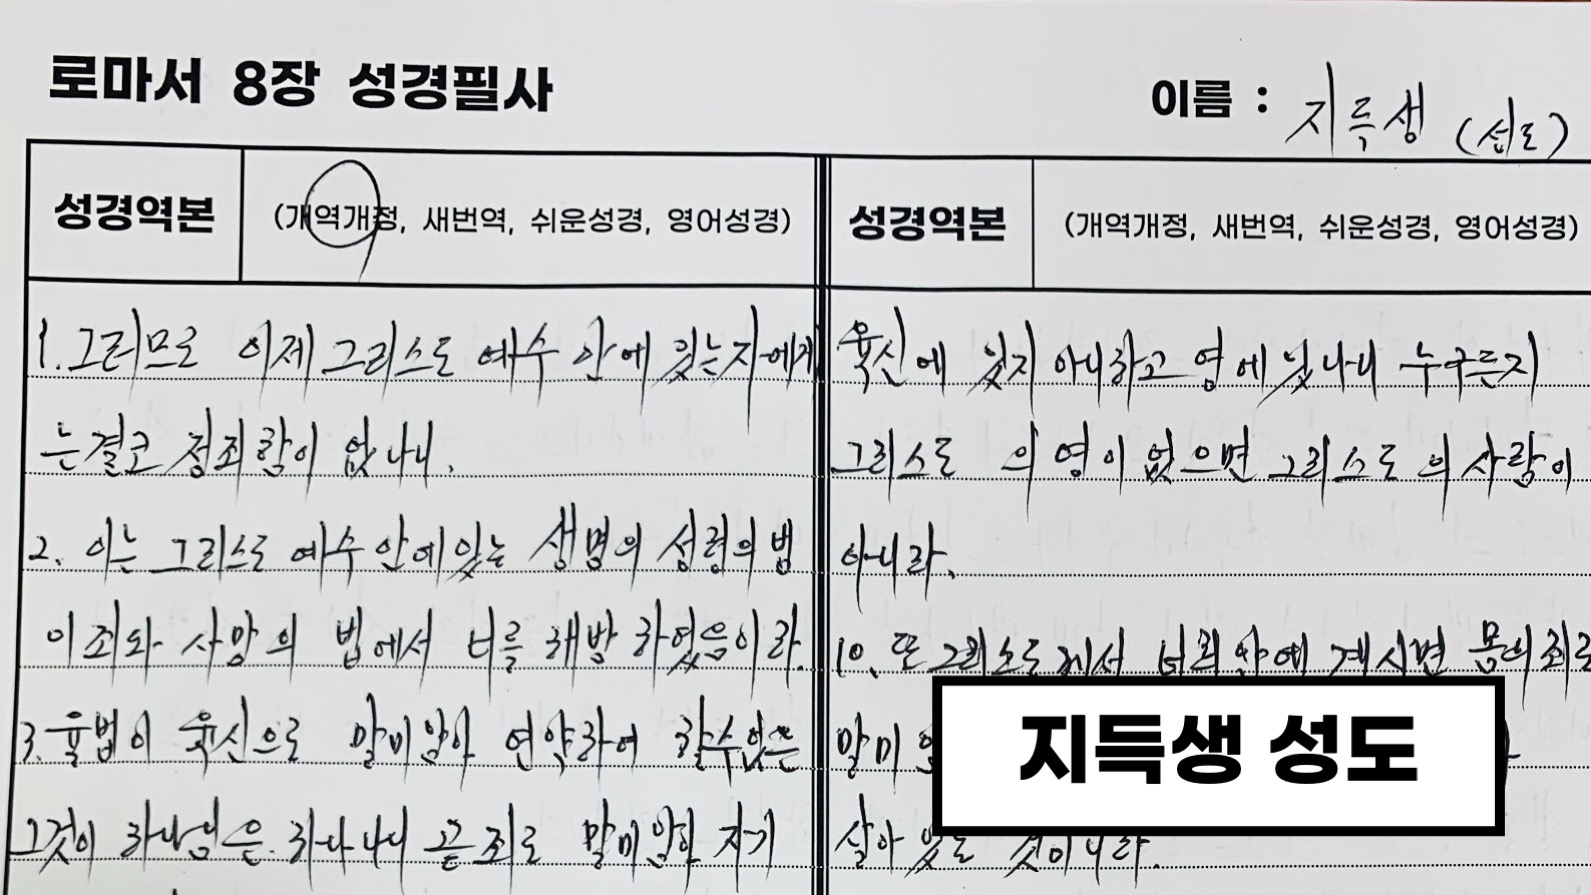 로마서 8장 성경필사
이름 : 지득생 (성도)
성경역본 (개역개정, 새번역, 쉬운성경, 영어성경)
1. 그러므로 이제 그리스도 예수 안에 있는자에게
는 결코 정죄함이 없나니.
2. 이는 그리스도 예수 안에 있는 생명의 성령의 법
이 죄와 사망의 법에서 너를 해방 하였음이라.
3. 율법이 육신으로 말미암아 연약하여 할수없는
그것이 하나님은 하나니 곧 죄로 말미암아 자기
성경역본 (개역개정, 새번역, 쉬운성경, 영어성경)
육신에 있지 아니하고 영에 있나니 누구든지
그리스도 의 영이 없으면 그리스도의 사람이
아니라.
10. 또 그리스도께서 너희 안에 계시면 몸의 죄로
말미
살아 있는 것이니라.
지득생 성도